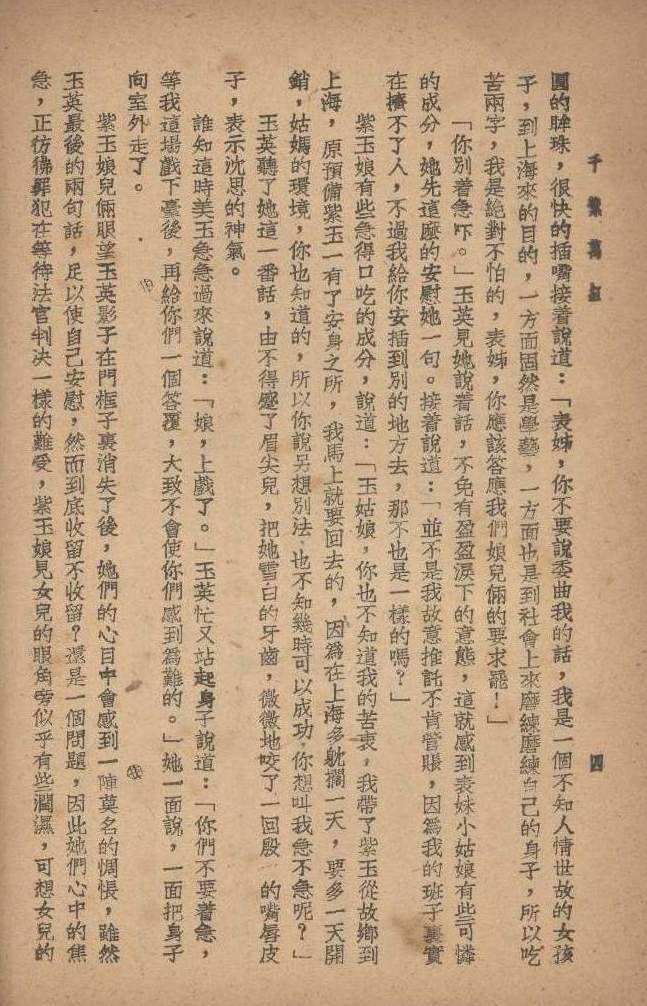 千紫萬紅
四
圓的眸珠，很快的插嘴接着說道：「表姊，你不要說委曲我的話，我是一個不知人情世故的女孩
子，到上海來的目的，一方面固然是學藝，一方面也是到社會上來磨練磨練自己的身子，所以吃
苦兩字，我是絕對不怕的，表姊，你應該答應我們娘兒倆的要求罷！」
「你別着急吓。」玉英見她說着話，不免有盈盈淚下的意態，這就感到表妹小姑娘有些可憐
的成分，她先這麼的安慰她一句。接着說道：「並不是我故意推託不肯管賬，因爲我的班子裏實
在擠不了人，不過我給你安插到別的地方去，那不也是一樣的嗎？」
紫玉娘有些急得口吃的成分，說道：「玉姑娘，你也不知道我的苦衷，我帶了紫玉從故鄉到
上海，原預備紫玉一有了安身之所，我馬上就要回去的，因爲在上海多躭擱一天，要多一天開
銷，姑媽的環境，你也知道的，所以你說另想別法，也不知幾時可以成功，你想叫我急不急呢？」
玉英聽了她這一番話，由不得蹙了眉尖兒，把她雪白的牙齒，微微地咬了一回殷 的嘴唇皮
子，表示沈思的神氣。
誰知這時美玉急急過來說道：「娘，上戲了。」玉英忙又站起身子說道：「你們不要着急，
等我這場戲下臺後，再給你們一個答覆，大致不會使你們感到爲難的。」她一面說，一面把身子
向室外走了。
紫玉娘兒倆眼望玉英影子在門框子裏消失了後，她們的心目中會感到一陣莫名的惆悵，雖然
玉英最後的兩句話，足以使自己安慰，然而到底收留不收留？還是一個問題，因此她們心中的焦
急，正彷彿罪犯在等待法官判决一樣的難受，紫玉娘見女兒的眼角旁似乎有些濶濕，可想女兒的